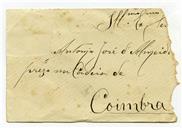 Illmo Snr
Antonio José d'Almeida
preso na Cadeia de
Coimbra